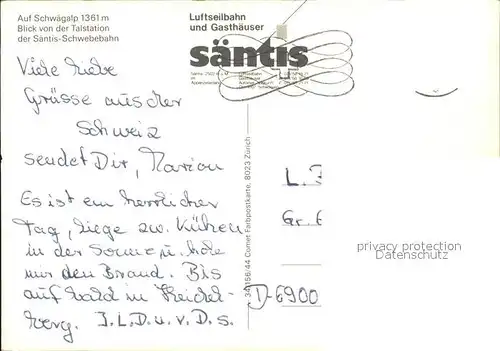 Auf Schwägalp 1361 m
Blick von der Talstation
der Säntis-Schwebebahn
Luftseilbahn
und Gasthäuser
säntis
Viele liebe
Grüsse aus der
Schweiz
sendet Dir, Marion
Es ist ein herrlicher
Tag, liege zw. Kühen
in der Sonne u. hole
mir den Brand. Bis
auf bald in Heidel-
berg. I.L.D.u.v.D.s.
34 156/44 Clumet Farbpostkarte, 8023 Zürich
L.
Gr.
D-6900
privacy protection
Datenschutz